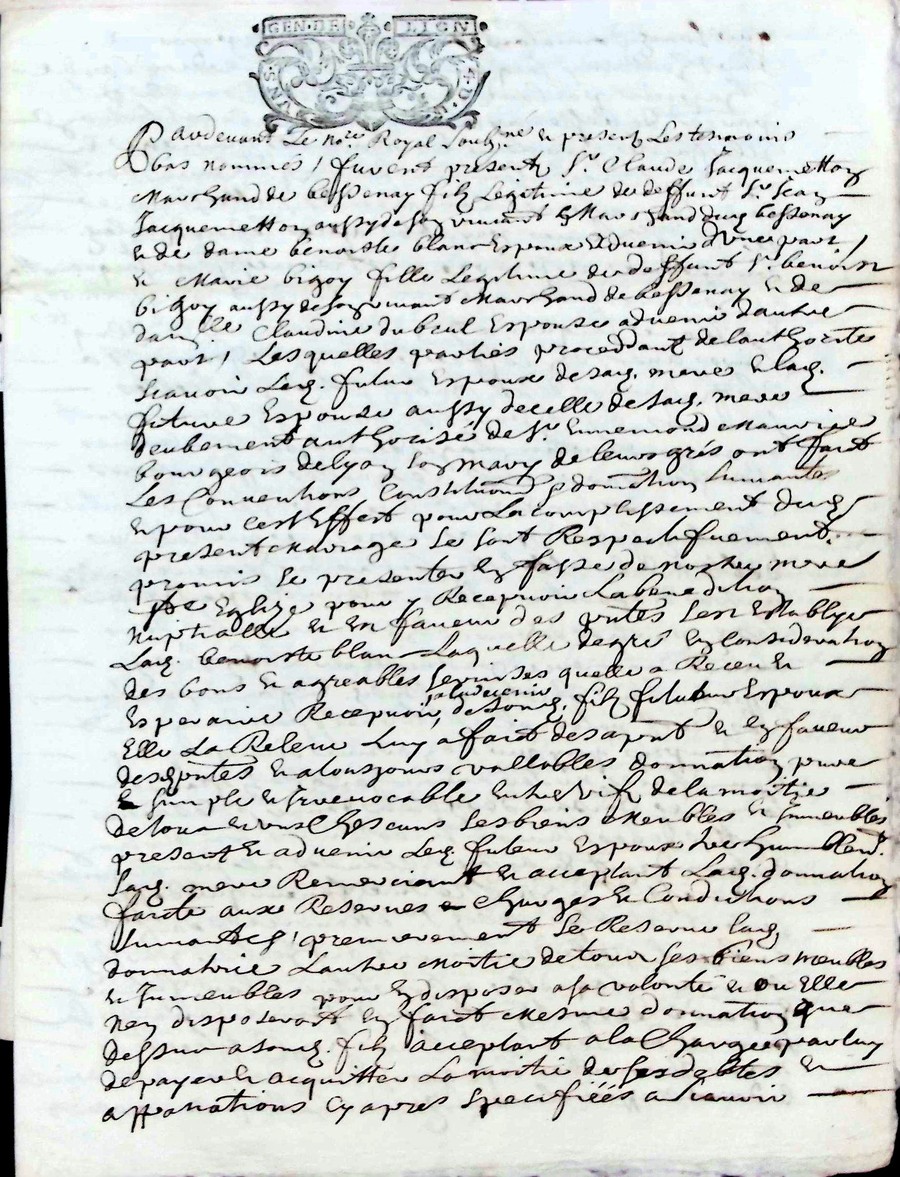 GEN·DE LION
Pardevant Le no.re Royal soubz.né et present Les tesmoins
bas nommés / furent presents Sr. Claude Jacquemetton
Marchand de bessenay filz Legitime de deffunt Sr. Jean
Jacquemetton aussy de son vivant Marchand dud. bessenay
et de dame benoiste blanc Espoux advenir d'une part /
et Marie bigoy fille Legitime de deffunt Sr. benoist
bigoy aussy de son vivant Marchand de bessenay et de
dam.lle Claudine dubeul Espouse advenir d'autre
part / Lesquelles parties procedant de lauthorité
scavoir Led. futur Espoux de sad. mere et lad.
future Espouse aussy de celle de sad. mere
deubement authorisée de Sr. Ennemond Mauvise
bourgeois de lyon son mary de leurs grés ont fait
Les Conventions Constitutions & donnation suivantes
et pour cest Effect pour Lacomplissement dud.
present Mariage se sont Respectifvement
promis se presenter en fasse de nostre mere
Ste Eglize pour y Recepvoir La benediction
nuptialle et en faveur des pntes sest Establye
Lad. benoiste blanc Laquelle de gré en Consideration
des bons et agreables services quelle a Receu et
Espere Recepvoir a ladvenir de sond. filz futur Espoux
Elle La Releve Luy a fait des apnt et en faveur
des pntes et a tousjours vallables donnation pure
et simple et Irrevocable entre vifz de la moitie
de tous et uns Chescuns ses biens Meubles et Immeubles
present et advenir Led. futur Espoux tres humblem.t
sad. mere Remerciant et acceptant Lad. donnation
faite aux Reserves et Charges et Conditions
suivantes / premierement se Reserve lad.
donnatrice Lautre Moitie de tous ses biens meubles
et Immeubles pour en disposer a sa volonté et ou Elle
nen disposeroit en fait Mesme donnation que
dessus a sond. filz acceptant a la Charge par luy
de payer et acquitter La moitie de ses debtes et
appanations Cy apres specifiéés a scavoir